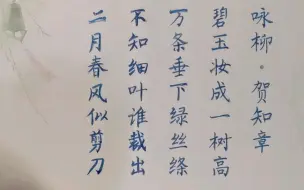 咏柳·贺知章
碧玉妆成一树高
万条垂下绿丝绦
不知细叶谁裁出
二月春风似剪刀